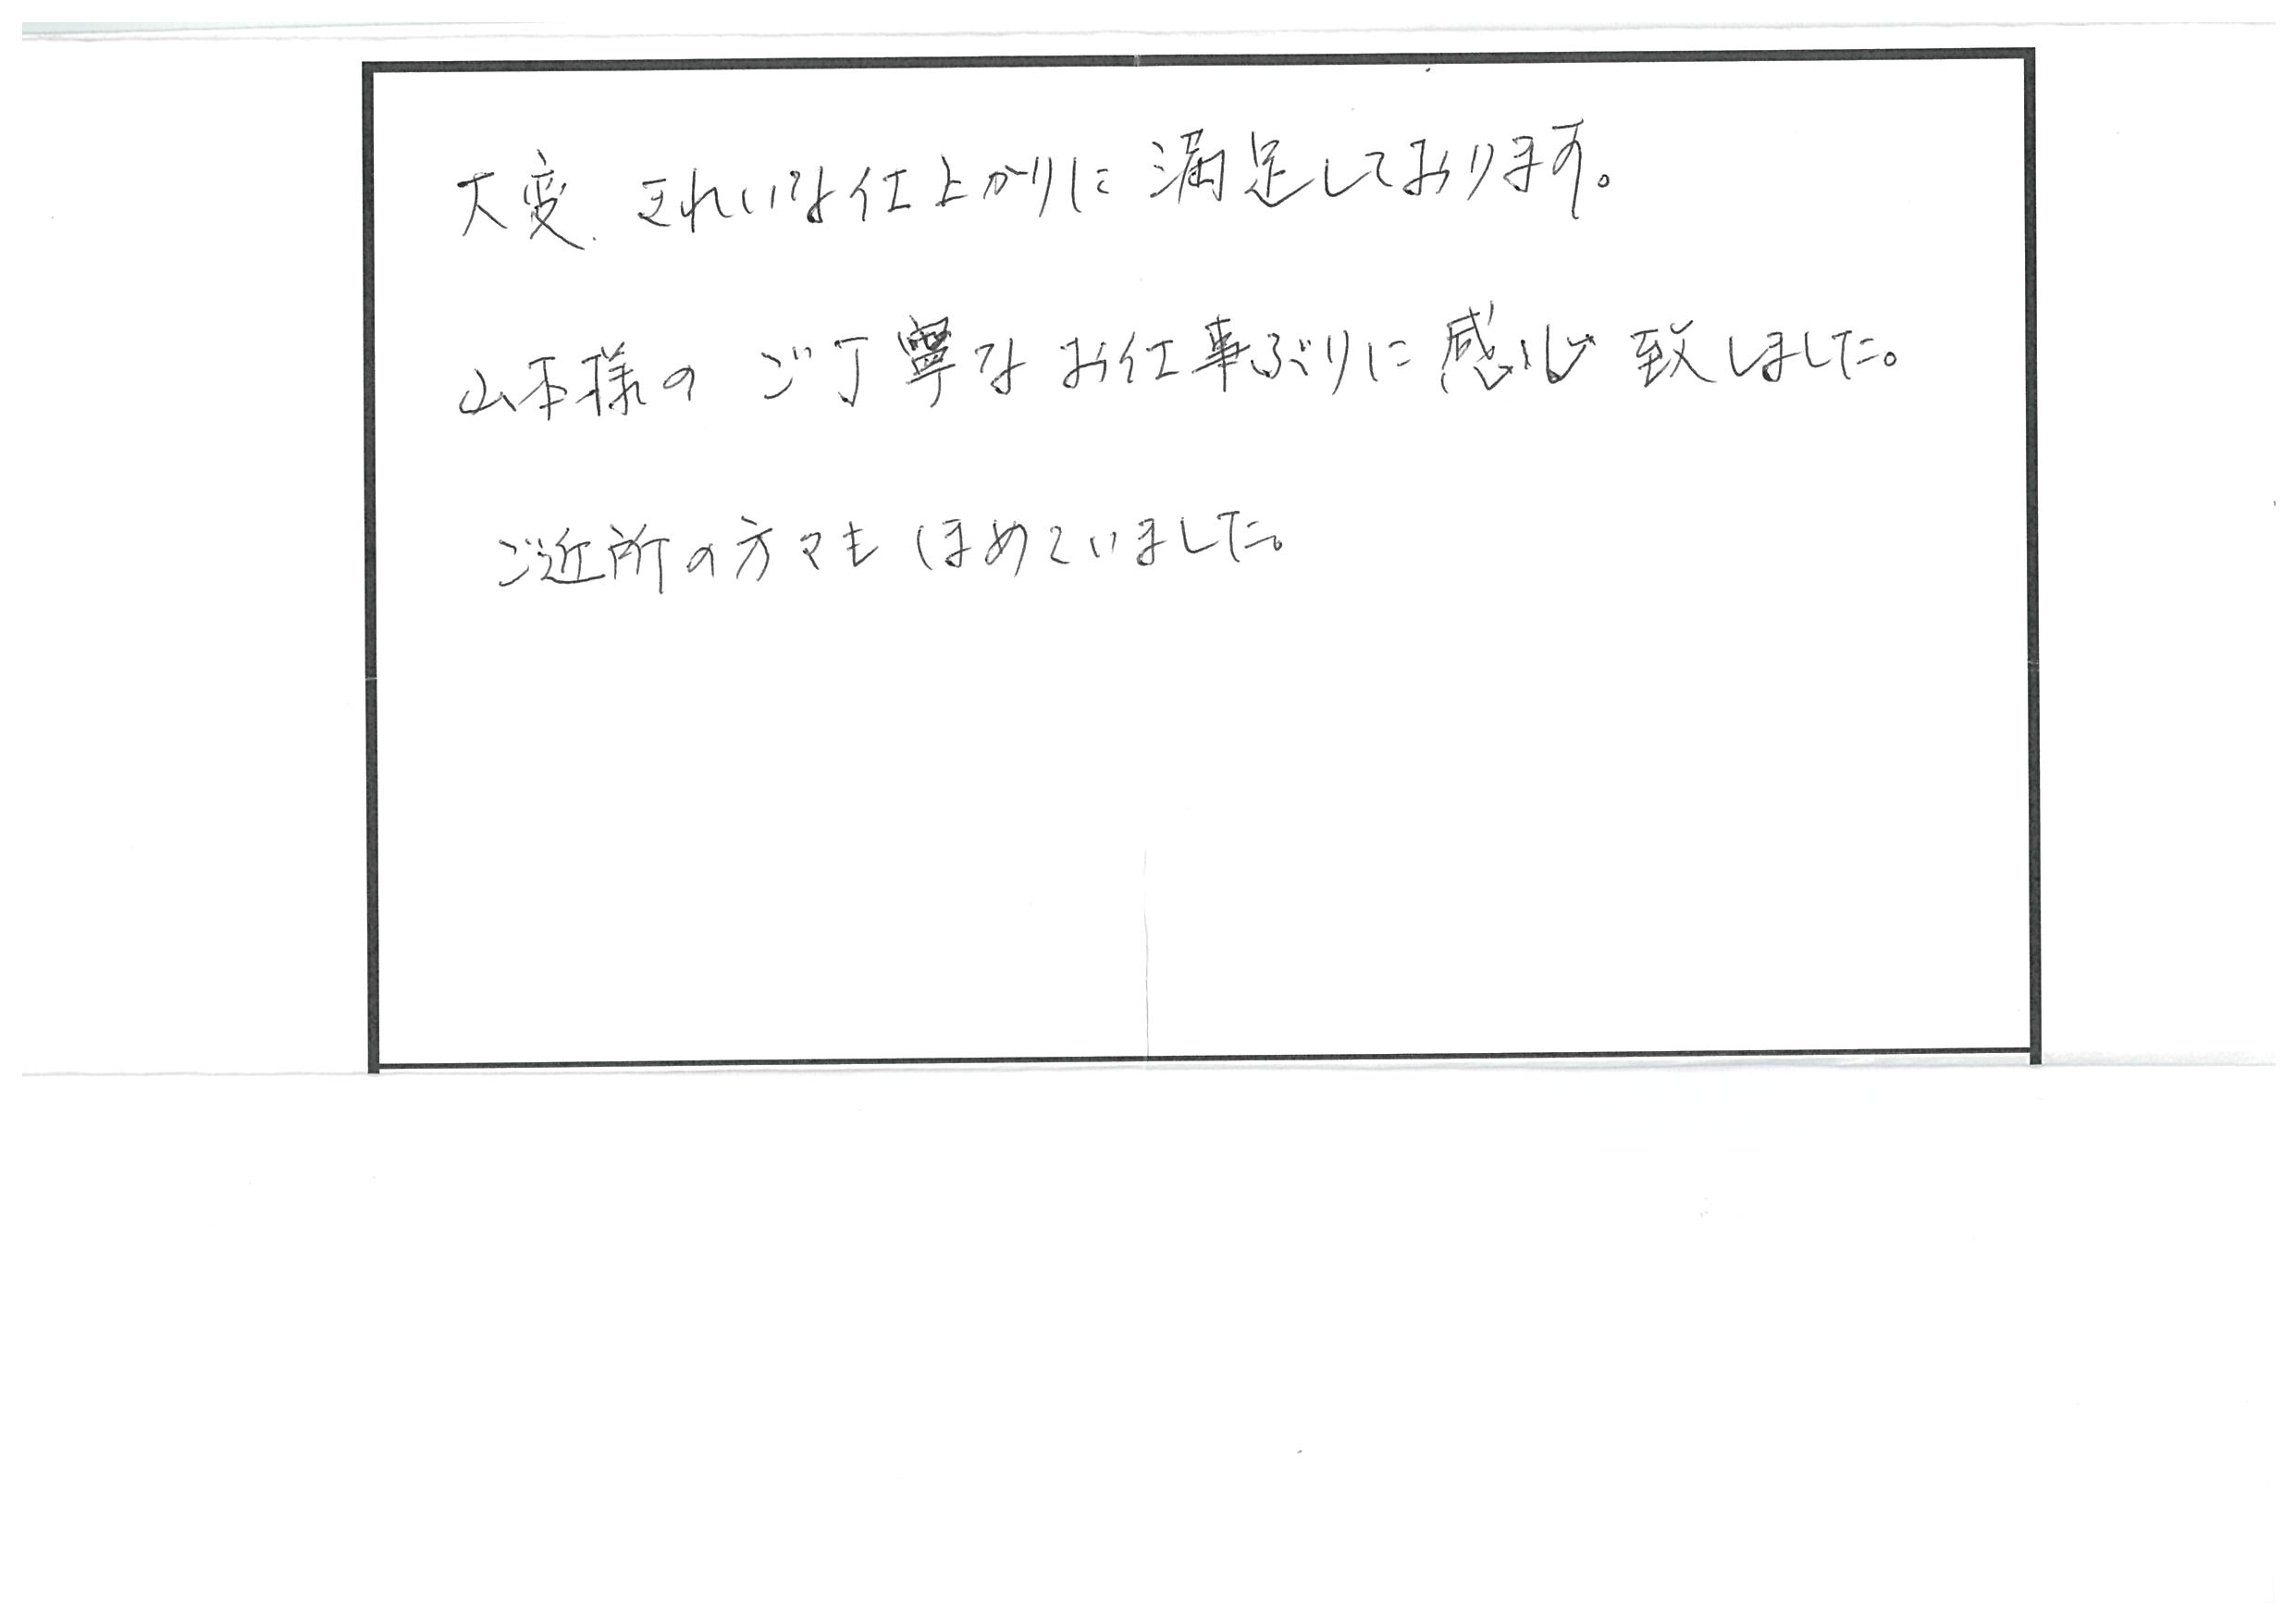 大変きれいな仕上がりに満足しております。
山本様のご丁寧なお仕事ぶりに感心致しました。
ご近所の方々もほめていました。